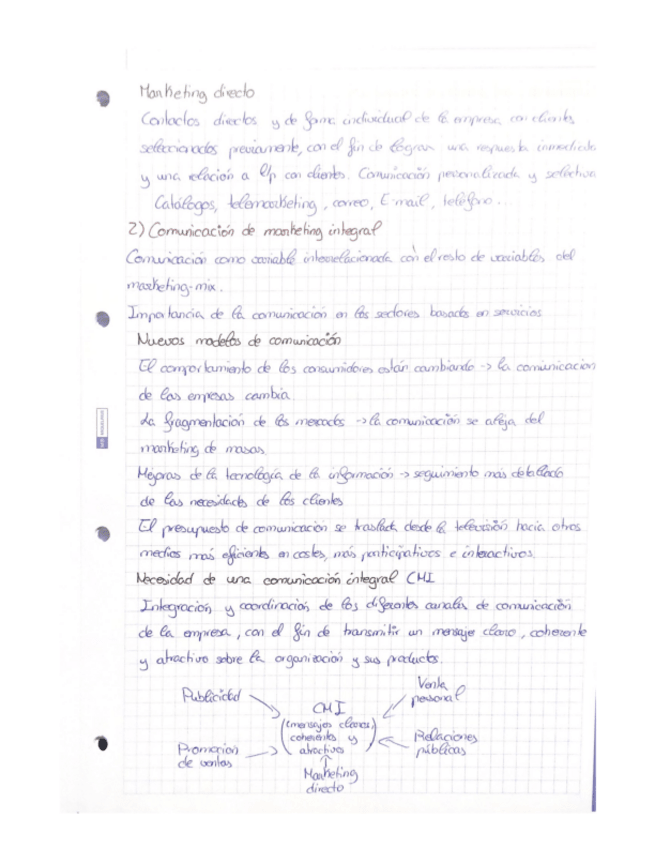 Marketing directo
Contactos directos y de forma individual de la empresa con clientes
seleccionados previamente, con el fin de lograr una respuesta inmediata
y una relación a l/p con clientes. Comunicación personalizada y selectiva
Catálogos, telemarketing, correo, E-mail, teléfono...
2) Comunicación de marketing integral
Comunicación como variable interrelacionada con el resto de variables del
marketing-mix.
Importancia de la comunicación en los sectores basados en servicios
Nuevos modelos de comunicación
El comportamiento de los consumidores están cambiando -> la comunicacion
de las empesas cambia.
La fragmentación de los mercados -> la comunicación se aleja del
marketing de masas.
Mejoras de la tecnología de la información -> seguimiento más detallado
de las necesidades de los clientes
El presupuesto de comunicación se traslada desde la televisión hacia otros
medios más eficientes en costes, más participativos e interactivos.
Necesidad de una comunicación integral CMI
Integración y coordinación de los diferentes canales de comunicación
de la empresa, con el fin de transmitir un mensaje claro, coherente
y atractivo sobre la organización y sus productos.
Publicidad
Venta
personal
CMI
(mensajes claros,
coherentes y
atractivos)
Promocion
de ventas
Relaciones
públicas
Marketing
directo